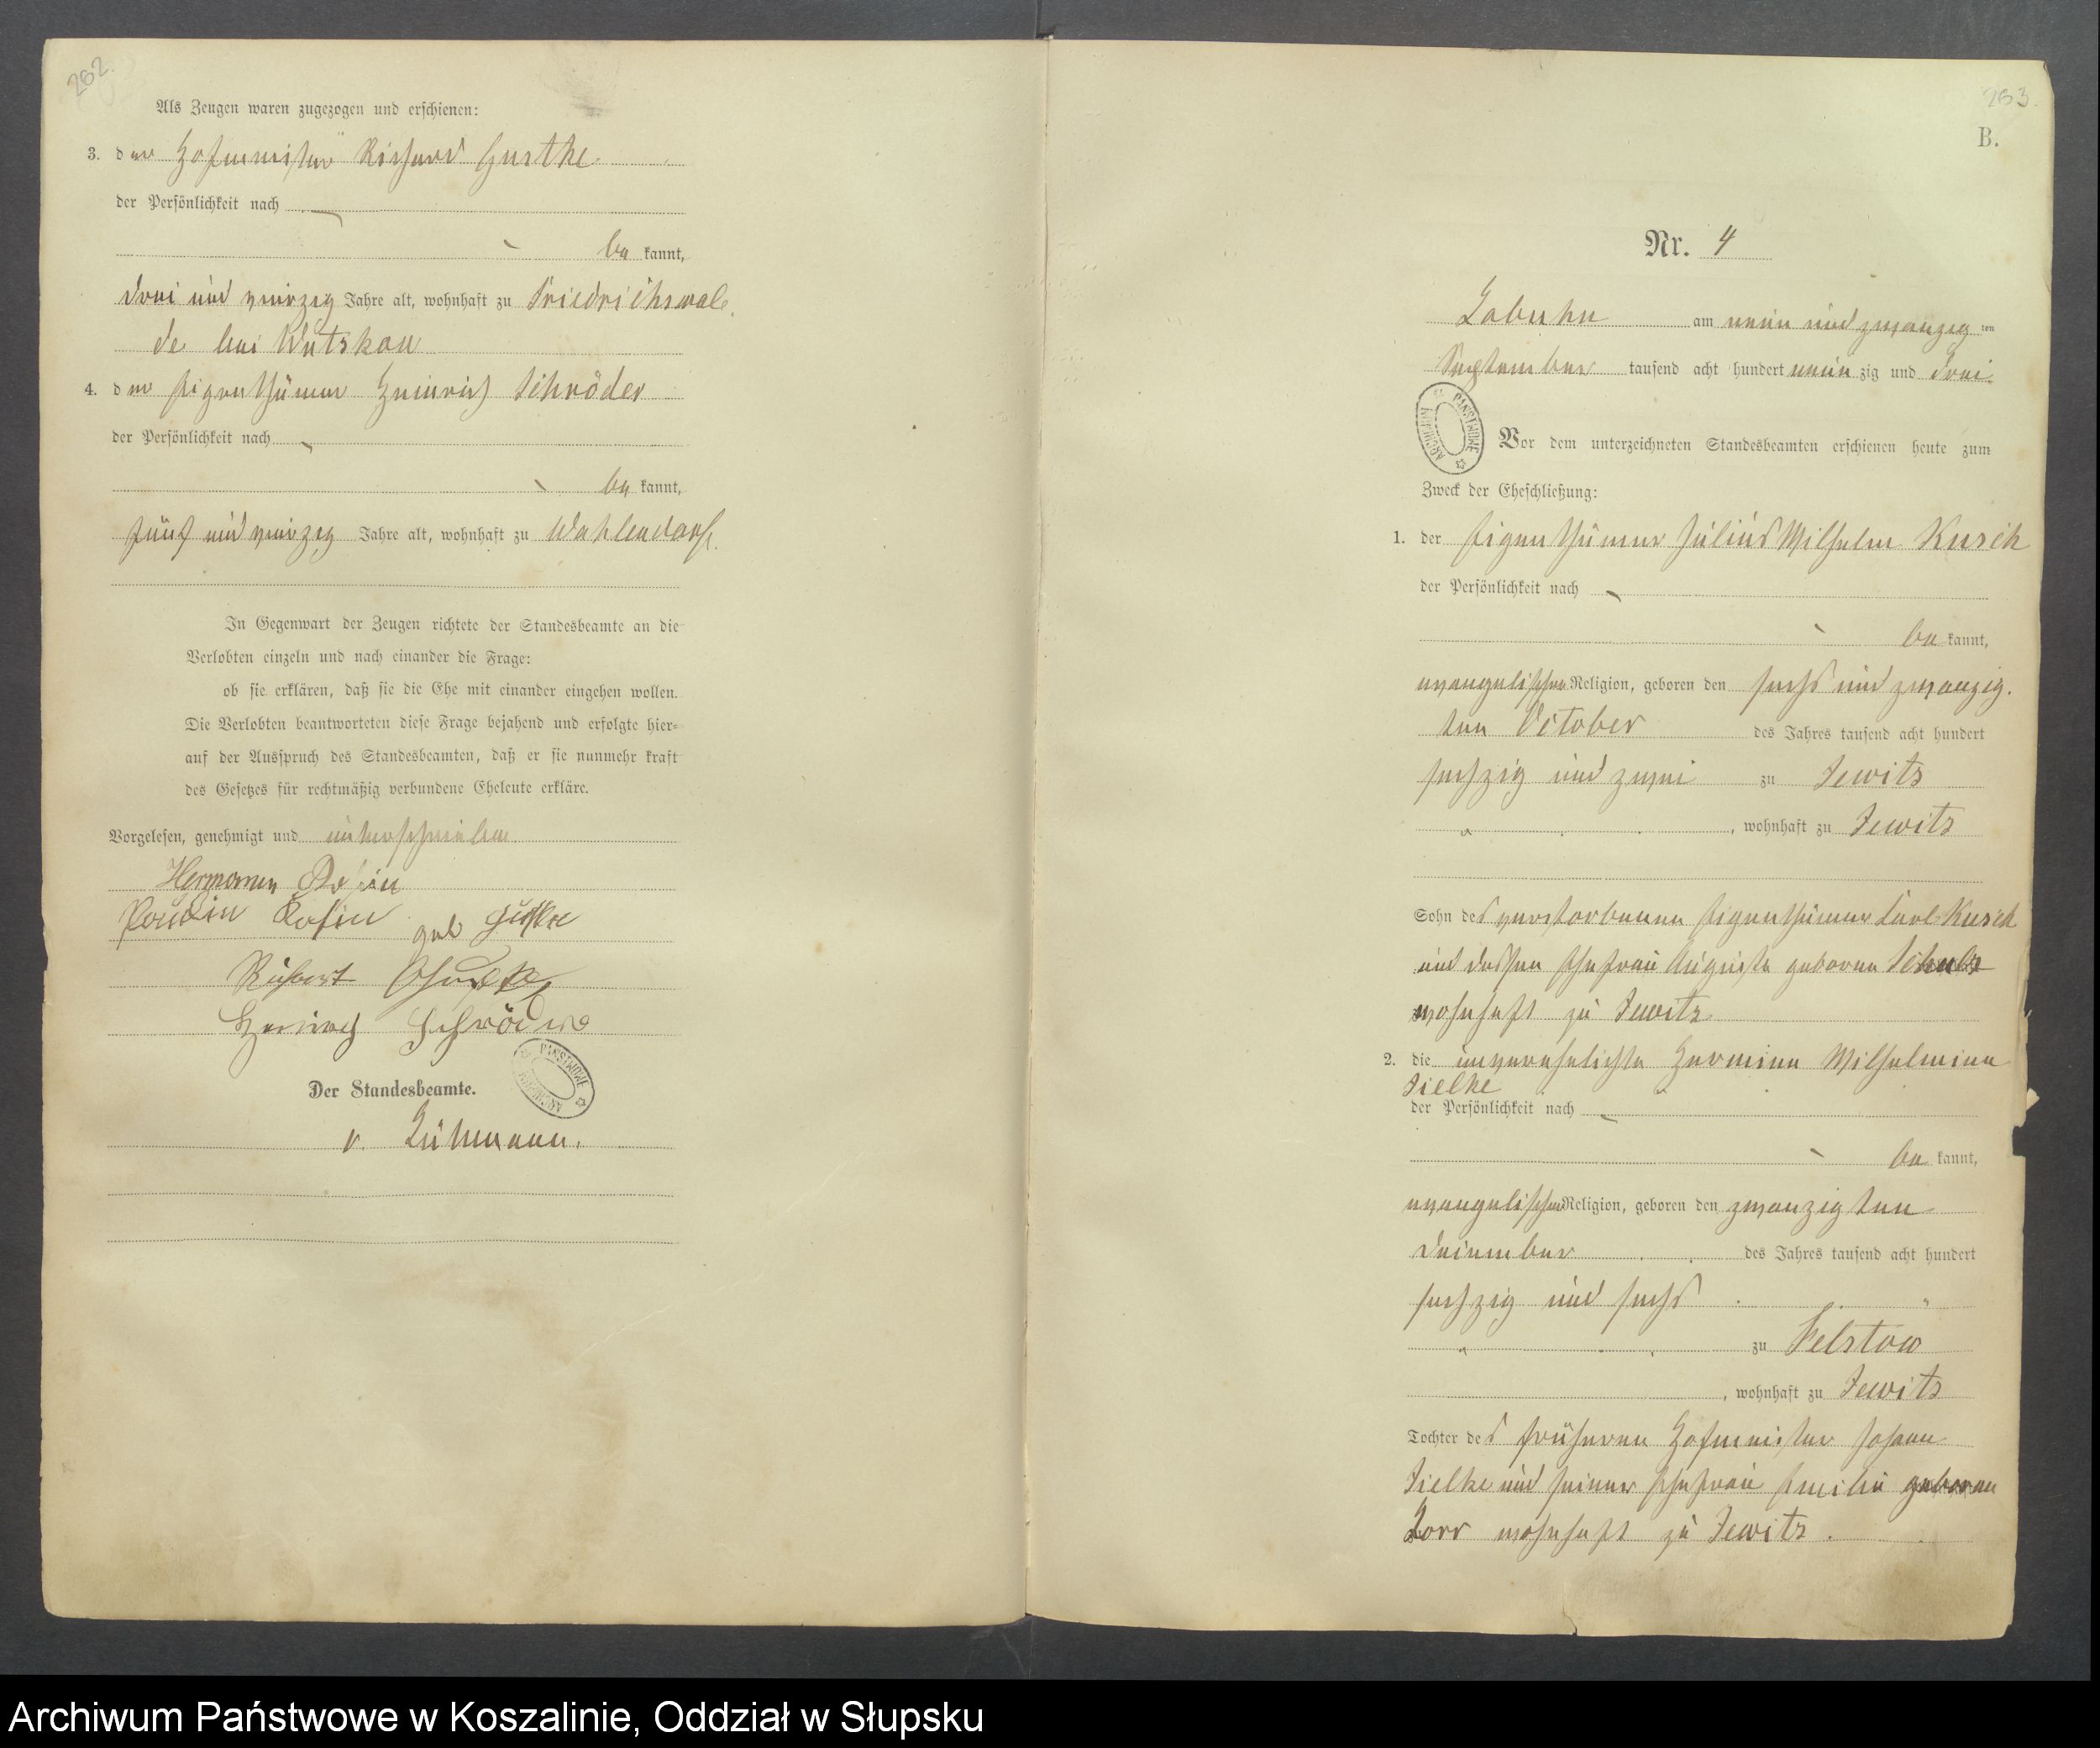 262.
Als Zeugen waren zugezogen und erschienen:
3. der Hofmeister Richard Gustke
der Persönlichkeit nach
be kannt,
drei und vierzig Jahre alt, wohnhaft zu Friedrichswal
de bei Wutzkow
4. der Eigenthümer Heinrich Schröder
der Persönlichkeit nach
be kannt,
fünf und vierzig Jahre alt, wohnhaft zu Wahlendorf.
In Gegenwart der Zeugen richtete der Standesbeamte an die
Verlobten einzeln und nach einander die Frage:
ob sie erklären, daß sie die Ehe mit einander eingehen wollen.
Die Verlobten beantworteten diese Frage bejahend und erfolgte hier=
auf der Ausspruch des Standesbeamten, daß er sie nunmehr kraft
des Gesetzes für rechtmäßig verbundene Eheleute erkläre.
Vorgelesen, genehmigt und unterschrieben
Hermann
geb
Heinrich Schröder
Der Standesbeamte.
v.
263.
B.
Nr. 4
Labuhn am neun und zwanzig ten
September tausend acht hundert neun zig und drei.
ARCHIWUM PAŃSTWOWE
Vor dem unterzeichneten Standesbeamten erschienen heute zum
Zweck der Eheschließung:
1. der Eigenthümer Julius Wilhelm Kusch
der Persönlichkeit nach
be kannt,
evangelischen Religion, geboren den sechs und zwanzig
ten October des Jahres tausend acht hundert
sechzig und zwei zu Zewitz
, wohnhaft zu Zewitz
Sohn des verstorbenen Eigenthümer Carl Kusch
und dessen Ehefrau Auguste geborene Schulz
wohnhaft zu Zewitz
2. die unverehelichte Hermine Wilhelmine
Zielke
der Persönlichkeit nach
be kannt,
evangelischen Religion, geboren den zwanzigten
December des Jahres tausend acht hundert
sechzig und sechs
zu Felstow
, wohnhaft zu Zewitz
Tochter des früheren Hofmeister Johann
Zielke und seiner Ehefrau Emilie geboren
Lorr wohnhaft zu Zewitz.
Archiwum Państwowe w Koszalinie, Oddział w Słupsku